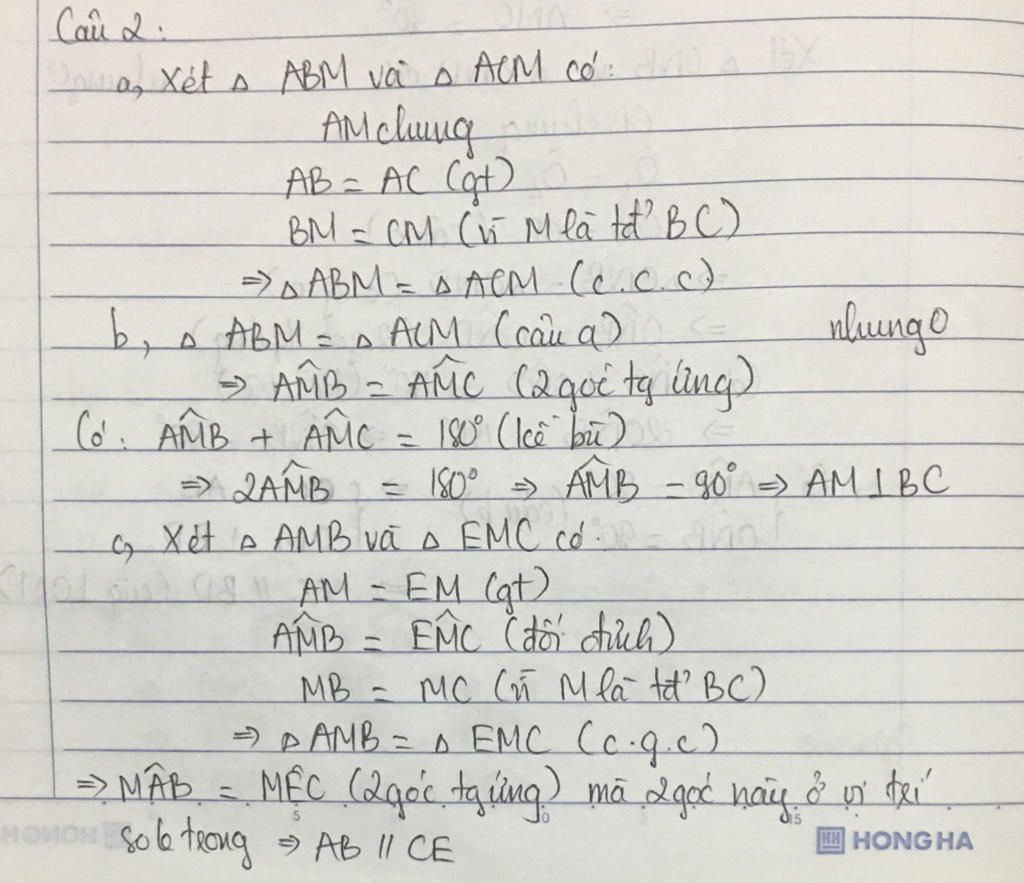 Câu 2:
a, Xét △ ABM và △ ACM có:
AM chung
AB = AC (gt)
BM = CM (vì M là tđ' BC)
=> △ ABM = △ ACM (c.c.c)
b, △ ABM = △ ACM (câu a) nhung0
=> AM̂B = AM̂C (2 góc tg ứng)
Có: AM̂B + AM̂C = 180° (kề bù)
=> 2AM̂B = 180° => AM̂B = 90° => AM ⊥ BC
c, Xét △ AMB và △ EMC có:
AM = EM (gt)
AM̂B = EM̂C (đối đỉnh)
MB = MC (vì M là tđ' BC)
=> △ AMB = △ EMC (c.g.c)
=> MÂB = MÊC (2 góc tg ứng) mà 2 góc này ở vị trí
so le trong => AB // CE
5 0 15
HH HONG HA